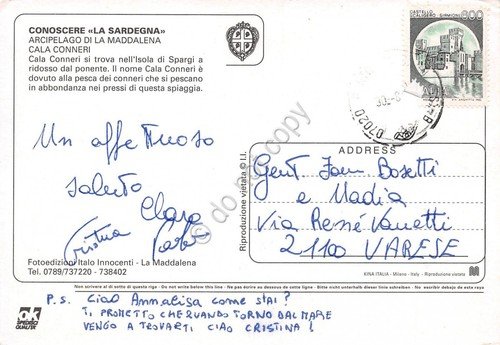 CONOSCERE «LA SARDEGNA»
ARCIPELAGO DI LA MADDALENA
CALA CONNERI
Cala Conneri si trova nell'Isola di Spargi a
ridosso dal ponente. Il nome Cala Conneri è
dovuto alla pesca dei conneri che si pescano
in abbondanza nei pressi di questa spiaggia.
800
07020
Un affettuoso
saluto
Clara
Cristina
Fotoedizioni Italo Innocenti - La Maddalena
Tel. 0789/737220 - 738402
Riproduzione vietata ©I.I.
do not copy
ADDRESS
Gent Fam Bosetti
e Nadia
Via René Vanetti
21100 VARESE
KINA ITALIA - Milano - Italy - Riproduzione vietata
Non scrivere al di sotto di questa riga - Do not write below this line - Ne pas écrire au dessous de cette ligne - Bitte nicht unterhalb dieser linien schreiben - No escribir debajo de esta raya
ok
SPECIRECI
QUALITÀ
P.S. Ciao Annalisa come stai?
TI PROMETTO CHE QUANDO TORNO DAL MARE
VENGO A TROVARTI CIAO CRISTINA!